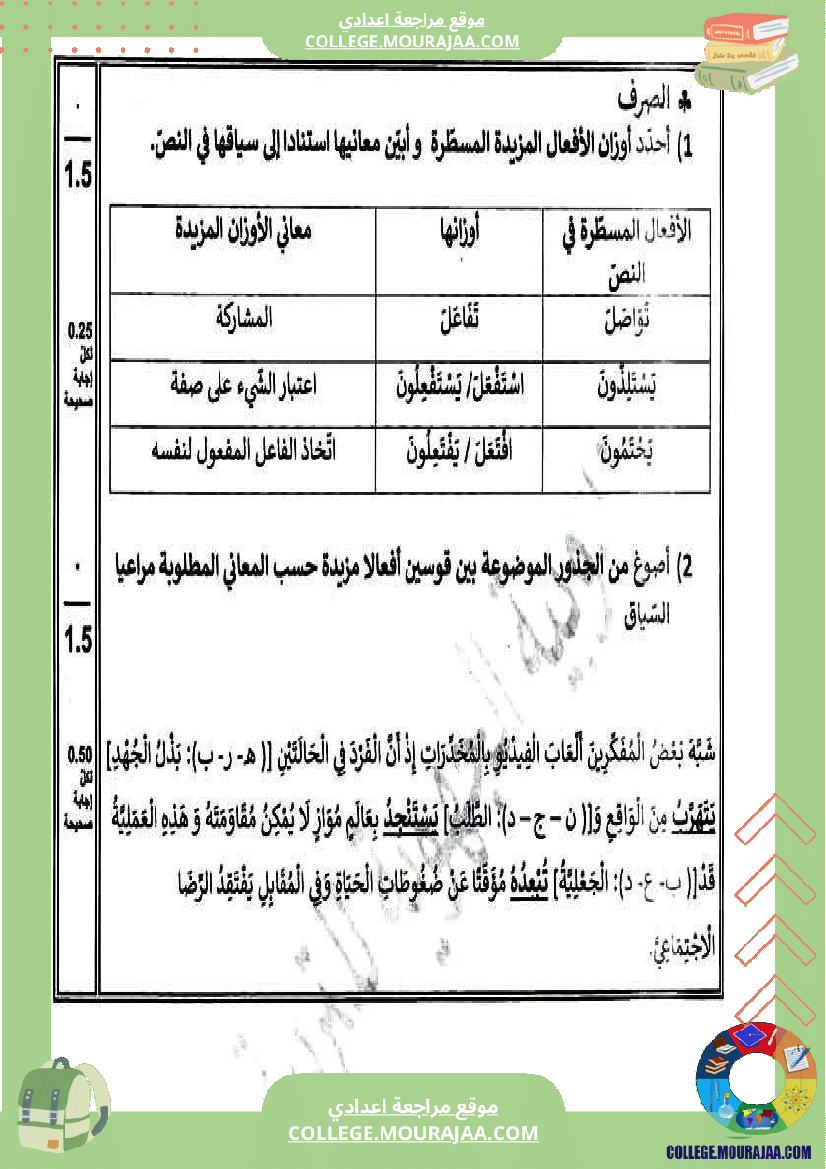 موقع مراجعة اعدادي
COLLEGE.MOURAJAA.COM
♣ الصرف
1) أحدّد أوزان الأفعال المزيدة المسطّرة و أبيّن معانيها استنادا إلى سياقها في النصّ.
.
1.5
الأفعال المسطّرة في النصّ | أوزانها | معاني الأوزان المزيدة
تَوَاصَلَ | تَفَاعَلَ | المشاركة
يَسْتَلِذُّونَ | اسْتَفْعَلَ/ يَسْتَفْعِلُونَ | اعتبار الشّيء على صفة
يَحْتَمُونَ | افْتَعَلَ / يَفْتَعِلُونَ | اتّخاذ الفاعل المفعول لنفسه
0.25
لكلّ
إجابة
صحيحة
2) أصوغ من الجذور الموضوعة بين قوسين أفعالا مزيدة حسب المعاني المطلوبة مراعيا
السّياق
.
1.5
شَبَّهَ بَعْضُ الْمُفَكِّرِينَ أَلْعَابَ الْفِيدْيُو بِالْمُخَدِّرَاتِ إِذْ أَنَّ الْفَرْدَ فِي الْحَالَتَيْنِ [( هـ- ر- ب): بَذْلُ الْجُهْدِ]
يَتَهَرَّبُ مِنَ الْوَاقِعِ وَ[( ن – ج – د): الطَّلَبُ] يَسْتَنْجِدُ بِعَالَمٍ مُوَازٍ لَا يُمْكِنُ مُقَاوَمَتَهُ وَ هَذِهِ الْعَمَلِيَّةُ
قَدْ[( ب- ع- د): الْجَعْلِيَّةُ] تُبْعِدُهُ مُؤَقَّتًا عَنْ ضُغُوطَاتِ الْحَيَاةِ وَفِي الْمُقَابِلِ يَفْتَقِدُ الرِّضَا
الْاِجْتِمَاعِيَّ.
0.50
لكلّ
إجابة
صحيحة
موقع مراجعة اعدادي
COLLEGE.MOURAJAA.COM
COLLEGE.MOURAJAA.COM